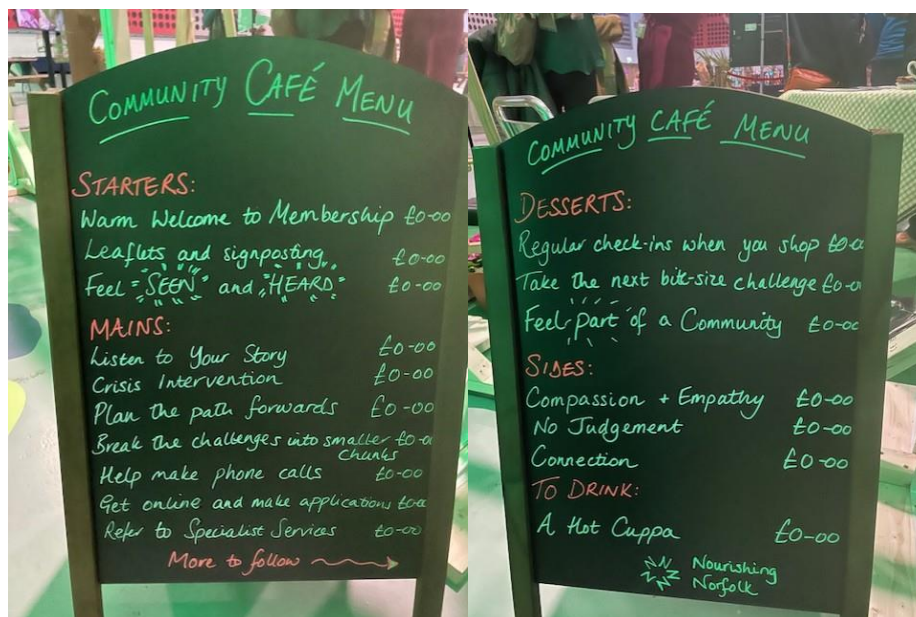 COMMUNITY CAFÉ MENU
STARTERS:
Warm Welcome to Membership £0-00
Leaflets and signposting £0-00
Feel "SEEN" and "HEARD" £0-00
MAINS:
Listen to Your Story £0-00
Crisis Intervention £0-00
Plan the path forwards £0-00
Break the challenges into smaller £0-00
chunks
Help make phone calls £0-00
Get online and make applications £0-00
Refer to Specialist Services £0-00
More to follow
COMMUNITY CAFÉ MENU
DESSERTS:
Regular check-ins when you shop £0-00
Take the next bite-size challenge £0-00
Feel part of a Community £0-00
SIDES:
Compassion + Empathy £0-00
No Judgement £0-00
Connection £0-00
TO DRINK:
A Hot Cuppa £0-00
Nourishing
Norfolk